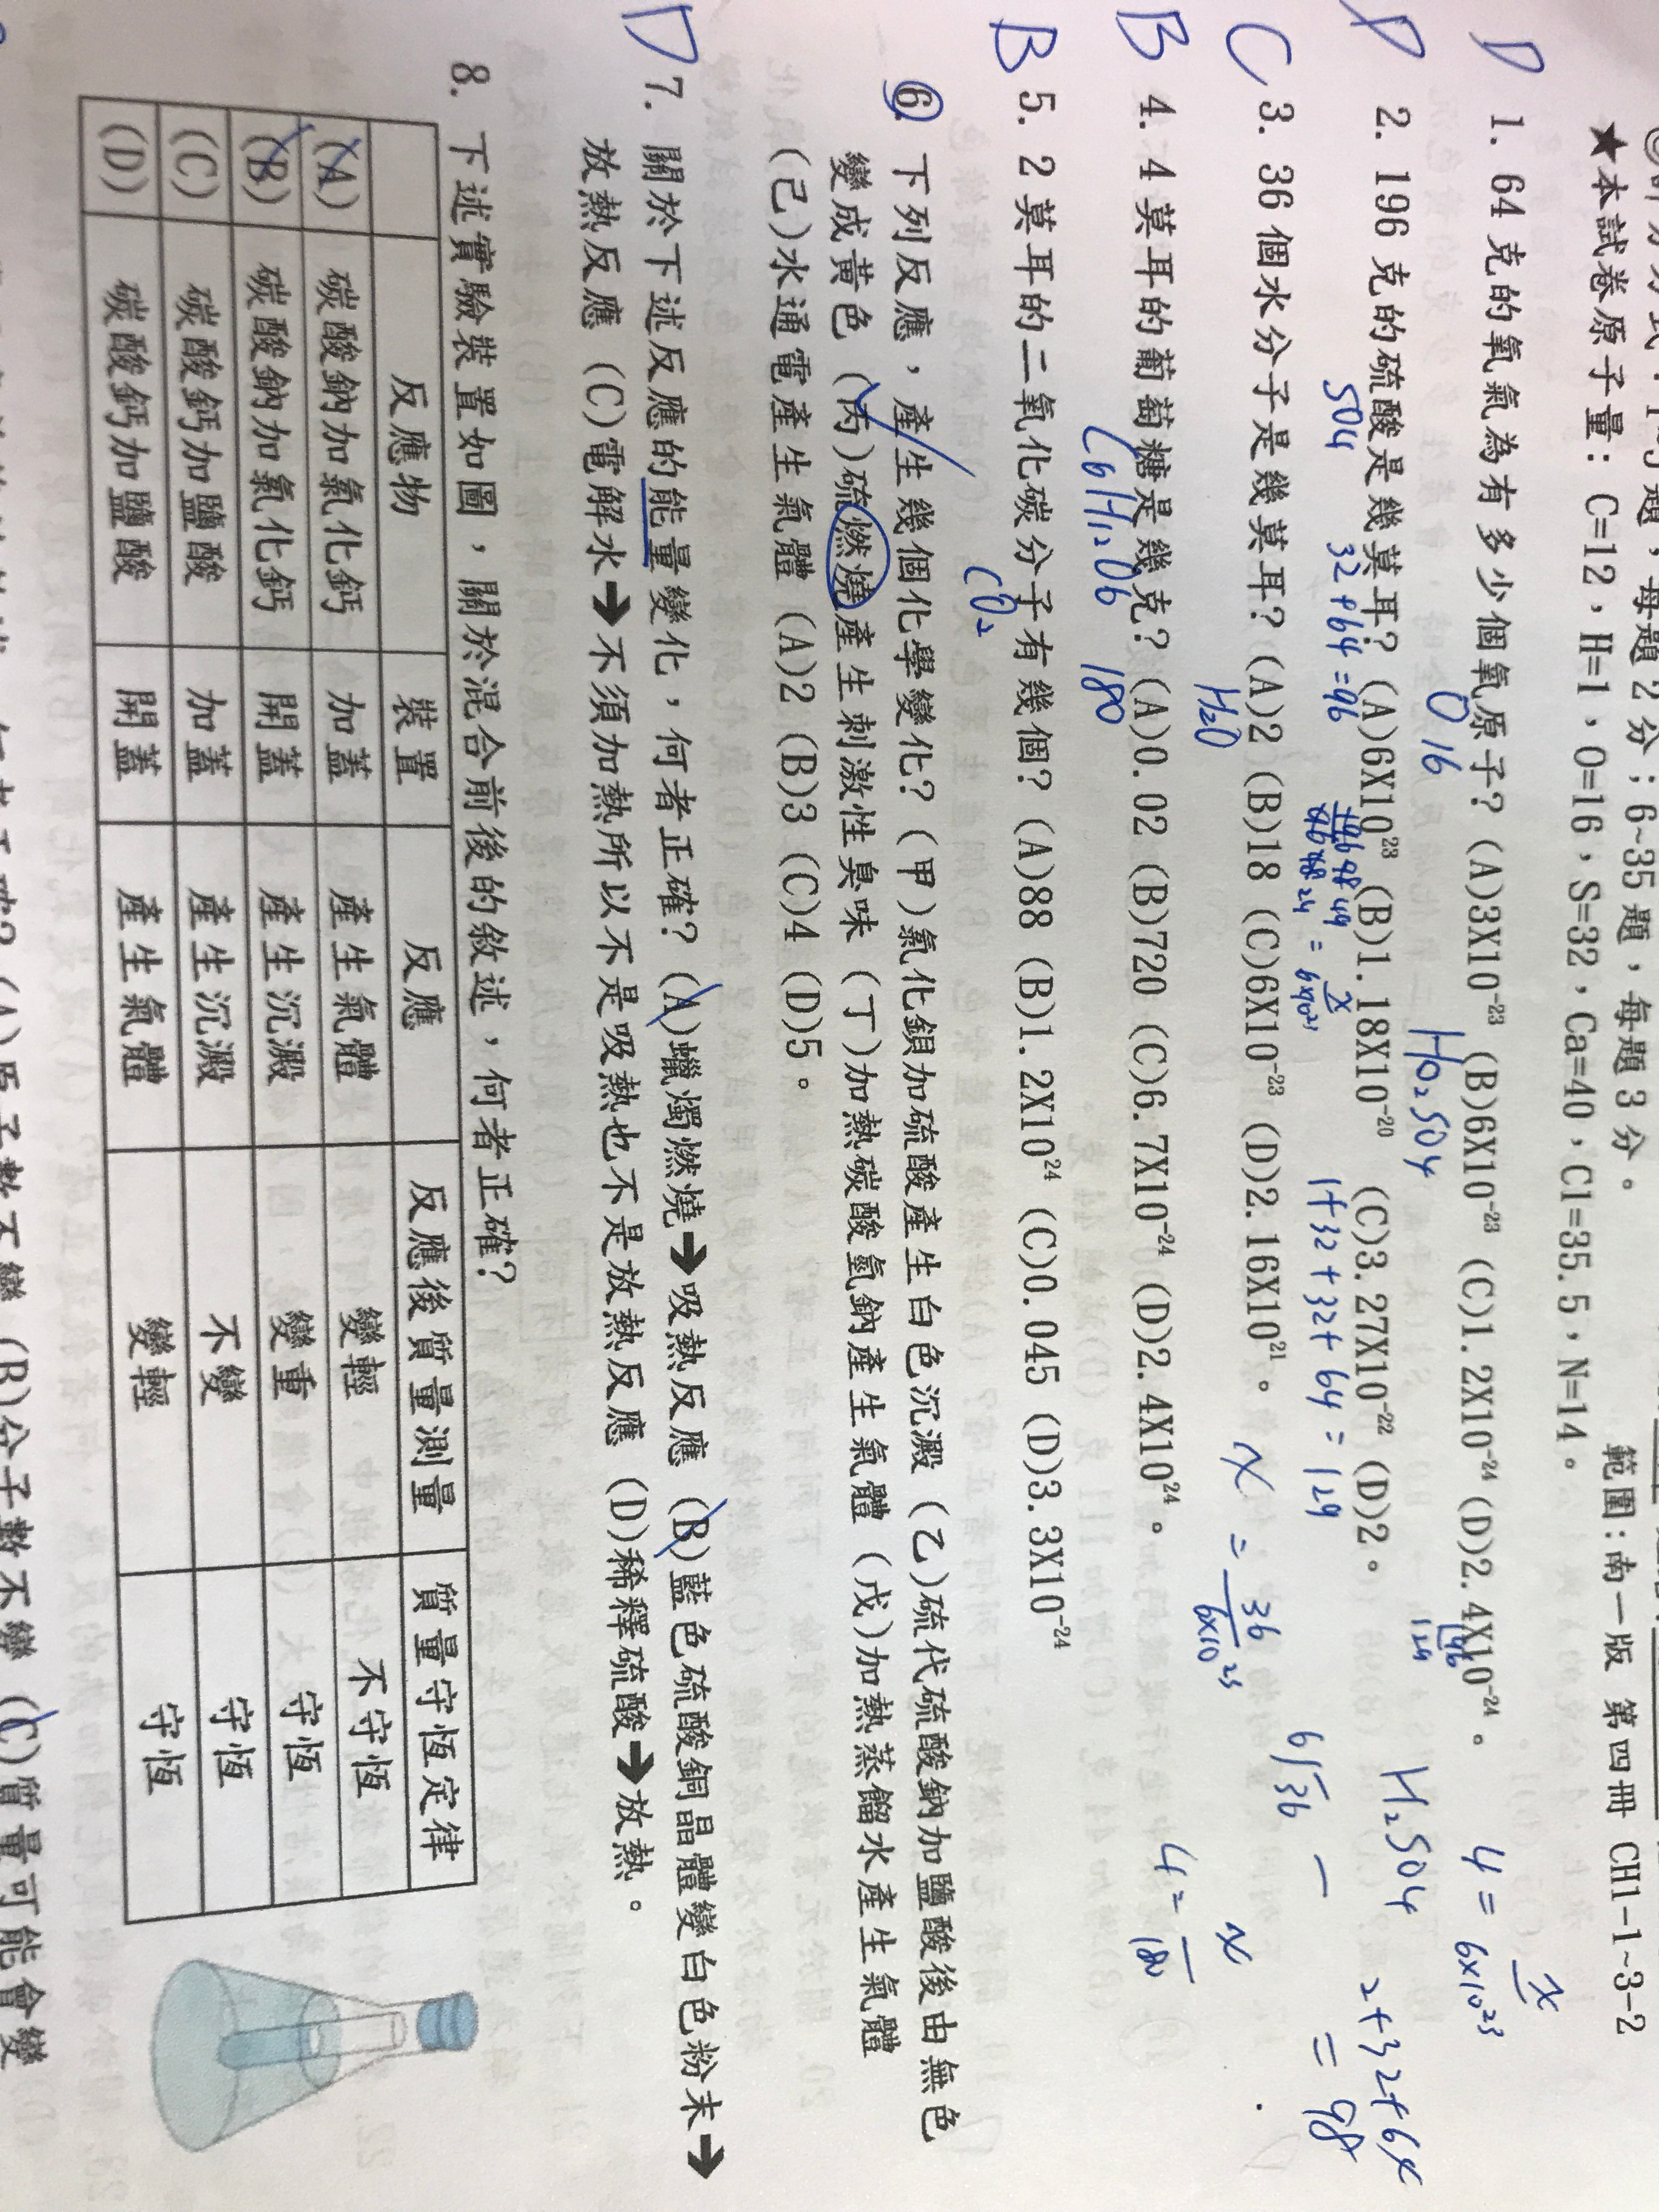 1~5題,每題2分;6~35題,每題3分。
範圍:南一版 第四冊 CH1-1~3-2
★本試卷原子量:C=12,H=1,O=16,S=32,Ca=40,Cl=35.5,N=14。
D 1. 64克的氧氣為有多少個氧原子?(A)3X10⁻²³ (B)6X10⁻²³ (C)1.2X10⁻²⁴ (D)2.4X10⁻²⁴。
O 16
4 = x/6x10²³
D 2. 196克的硫酸是幾莫耳?(A)6X10²³ (B)1.18X10⁻²⁰ (C)3.27X10⁻²² (D)2。
SO4 32+64=96
HO₂SO4 1+32+32+64=129
H₂SO4 2+32+64
=98
C 3. 36個水分子是幾莫耳?(A)2 (B)18 (C)6X10⁻²³ (D)2.16X10²¹。
H₂O
x = 36/6x10²³
B 4. 4莫耳的葡萄糖是幾克?(A)0.02 (B)720 (C)6.7X10⁻²⁴ (D)2.4X10²⁴。
C6H₁₂O6 180
B 5. 2莫耳的二氧化碳分子有幾個?(A)88 (B)1.2X10²⁴ (C)0.045 (D)3.3X10⁻²⁴
CO₂
6. 下列反應,產生幾個化學變化?(甲)氯化鋇加硫酸產生白色沉澱 (乙)硫代硫酸鈉加鹽酸後由無色
變成黃色 (丙)硫燃燒產生刺激性臭味 (丁)加熱碳酸氫鈉產生氣體 (戊)加熱蒸餾水產生氣體
(己)水通電產生氣體 (A)2 (B)3 (C)4 (D)5。
D 7. 關於下述反應的能量變化,何者正確?(A)蠟燭燃燒➔吸熱反應 (B)藍色硫酸銅晶體變白色粉末➔
放熱反應 (C)電解水➔不須加熱所以不是吸熱也不是放熱反應 (D)稀釋硫酸➔放熱。
8. 下述實驗裝置如圖,關於混合前後的敘述,何者正確?
反應物 裝置 反應 反應後質量測量 質量守恆定律
(A) 碳酸鈉加氯化鈣 加蓋 產生氣體 變輕 不守恆
(B) 碳酸鈉加氯化鈣 開蓋 產生沉澱 變重 守恆
(C) 碳酸鈣加鹽酸 加蓋 產生沉澱 不變 守恆
(D) 碳酸鈣加鹽酸 開蓋 產生氣體 變輕 守恆
(A)原子數不變 (B)分子數不變 (C)質量可能會變